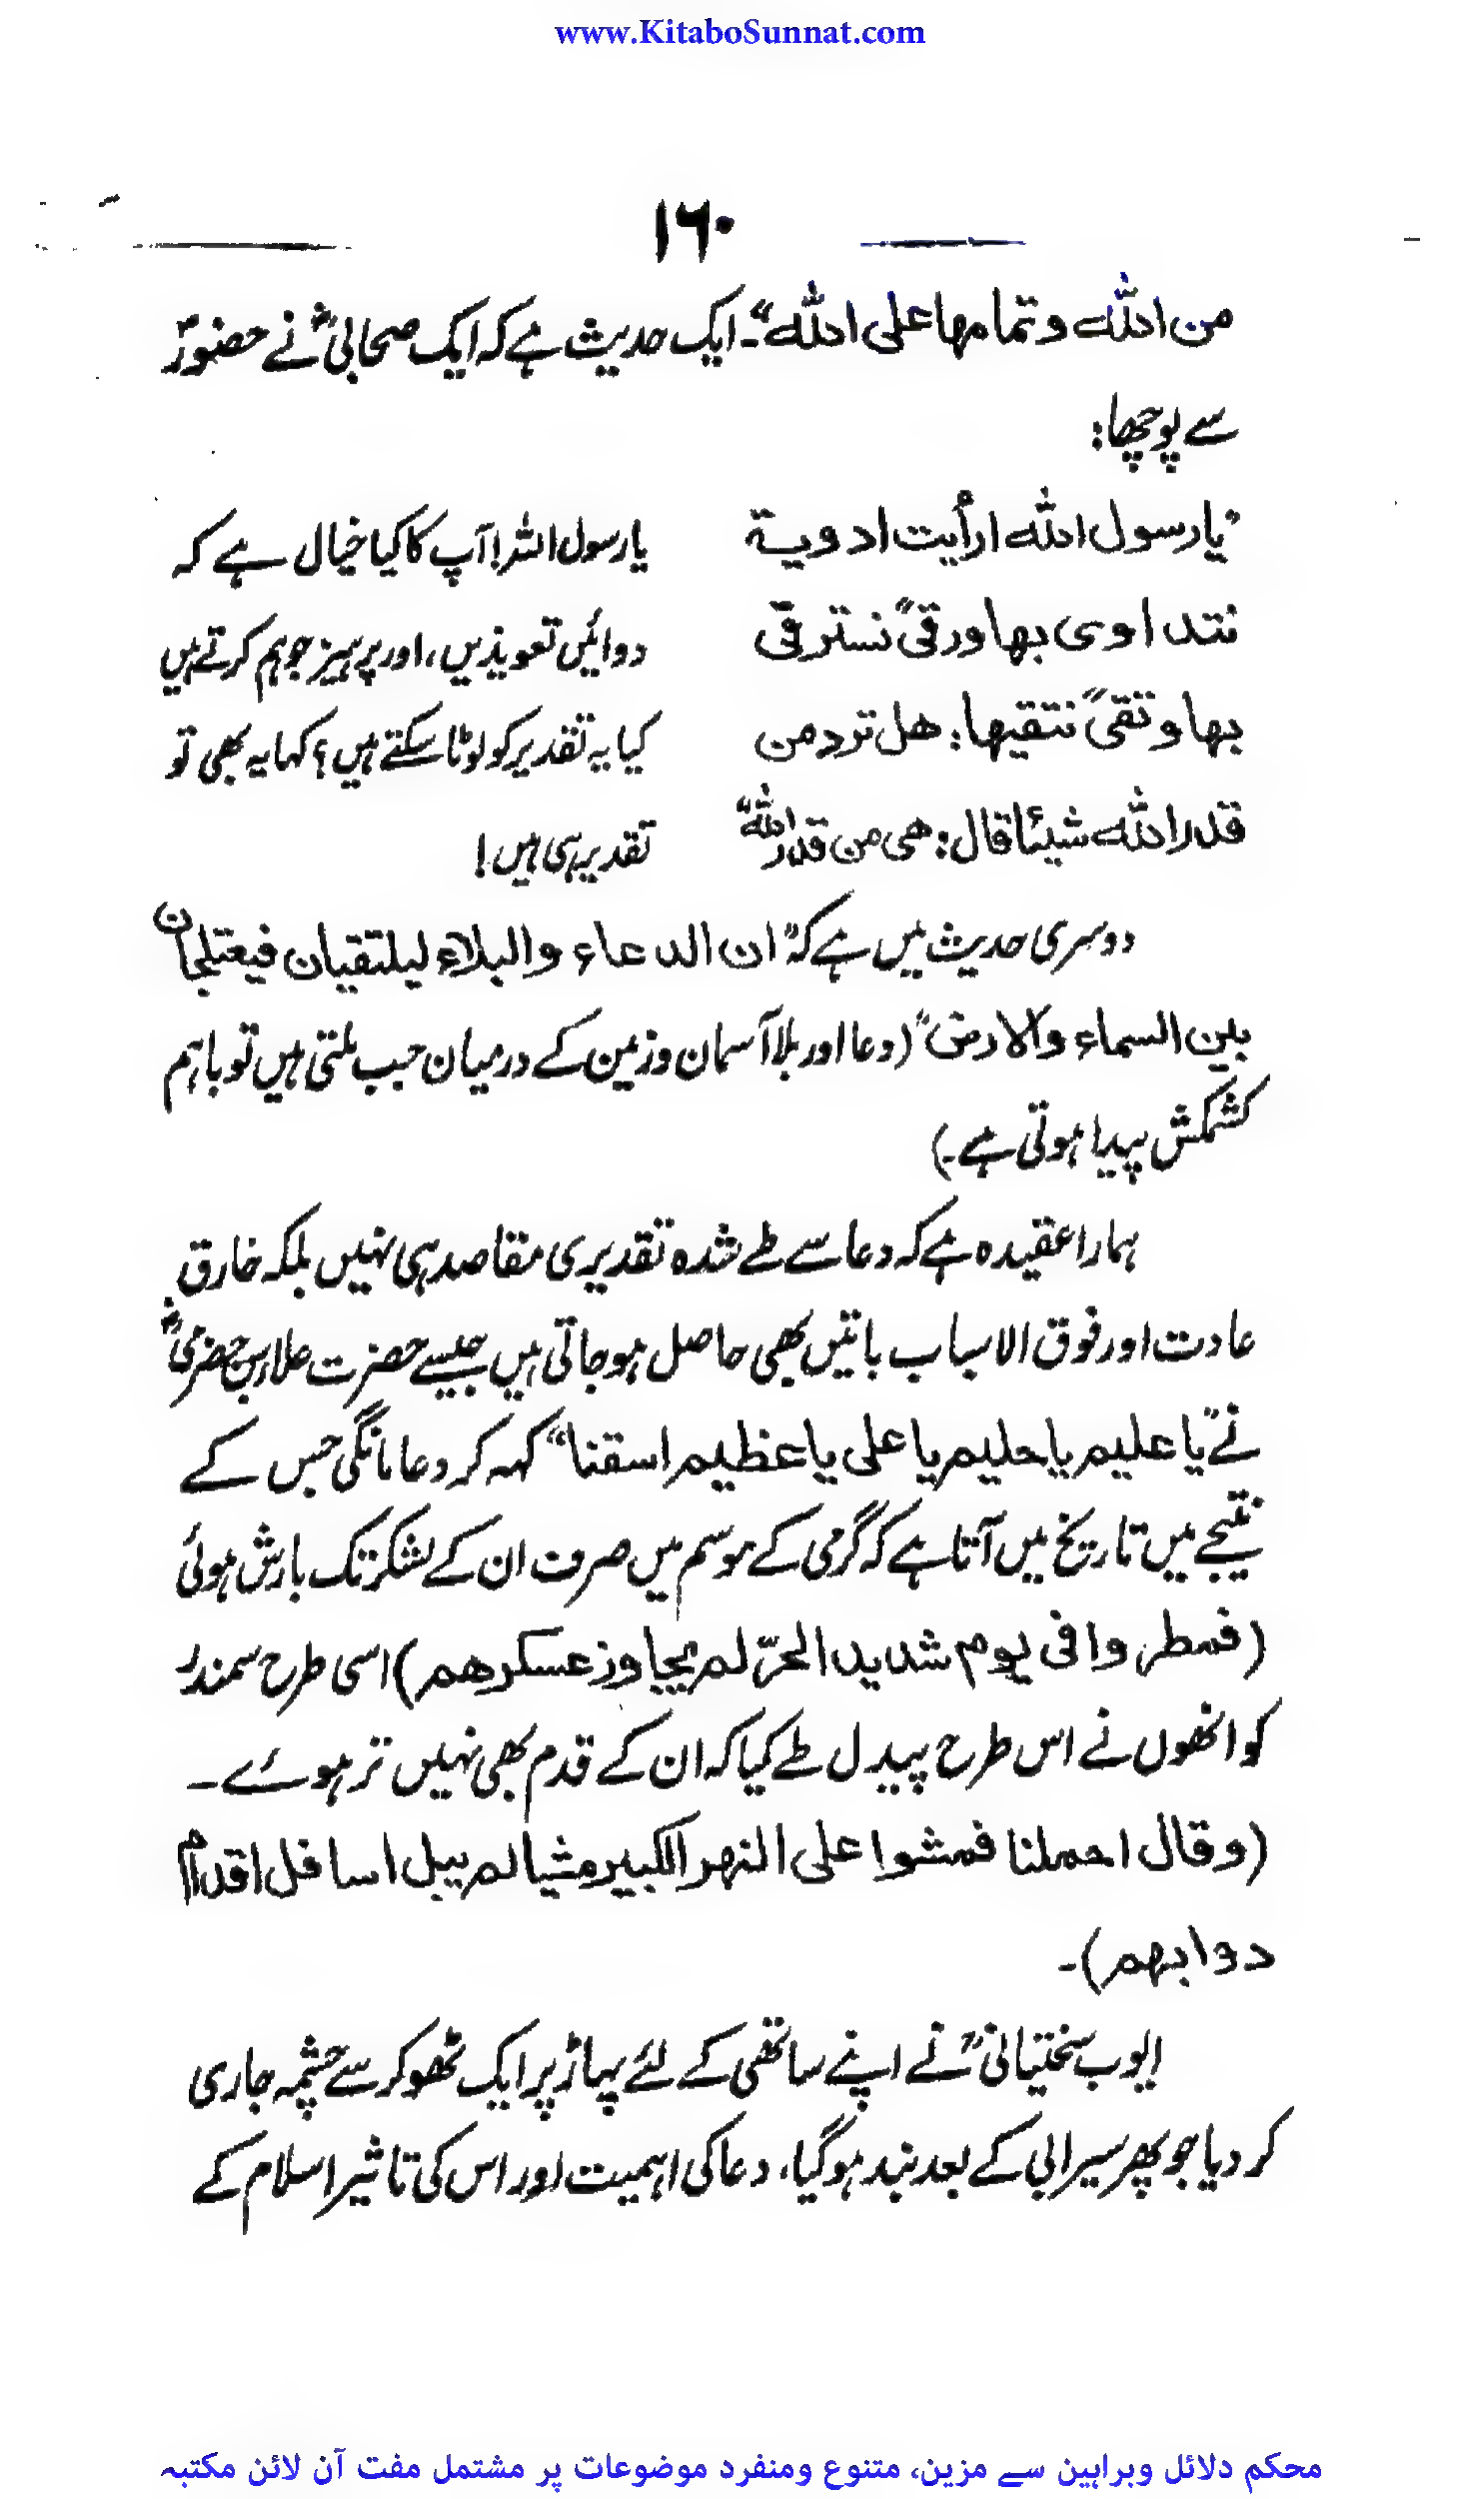 www.KitaboSunnat.com
۱۶۰
من اللہ وتمامھا علی اللہ"۔ ایک حدیث ہے کہ ایک صحابیؓ نے حضورؐ
سے پوچھا:
"یارسول اللہ ارأیت ادویة
نتداوی بھا ورقیً نسترقی
بھا وتقیً نتقیھا: ھل ترد من
قدر اللہ شیئا قال: ھی من قدر اللہ"
یارسول اللہ! آپ کا کیا خیال ہے کہ
دوائیں تعویذیں، اور پرہیز جو ہم کرتے ہیں
کیا یہ تقدیر کو لوٹا سکتے ہیں؟ کہا یہ بھی تو
تقدیر ہی ہیں!
دوسری حدیث میں ہے کہ "ان الدعاء والبلاء لیلتقیان فیعتلجان
بین السماء والارض" (دعا اور بلا آسمان وزمین کے درمیان جب ملتی ہیں تو باہم
کشمکش پیدا ہوتی ہے۔)
ہمارا عقیدہ ہے کہ دعا سے طے شدہ تقدیری مقاصد ہی نہیں بلکہ خارق
عادت اور فوق الاسباب باتیں بھی حاصل ہوجاتی ہیں جیسے حضرت علاء بن حضرمیؓ
نے "یا علیم یا حلیم یا علی یا عظیم اسقنا" کہہ کر دعا مانگی جس کے
نتیجے میں تاریخ میں آتا ہے کہ گرمی کے موسم میں صرف ان کے لشکر تک بارش ہوئی
(فمطروا فی یوم شدید الحرّ لم یجاوز عسکرھم) اسی طرح سمندر
کو انھوں نے اس طرح پیدل طے کیا کہ ان کے قدم بھی نہیں تر ہوئے۔
(وقال احملنا فمشوا علی النھر الکبیر مشیا لم یبل اسافل اقدام
دوابھم)۔
ایوب سختیانیؒ نے اپنے ساتھی کے لئے پہاڑ پر ایک ٹھوکر سے چشمہ جاری
کر دیا جو پھر سیرابی کے بعد بند ہوگیا، دعا کی اہمیت اور اس کی تاثیر اسلام کے
محکم دلائل وبراہین سے مزین، متنوع ومنفرد موضوعات پر مشتمل مفت آن لائن مکتبہ